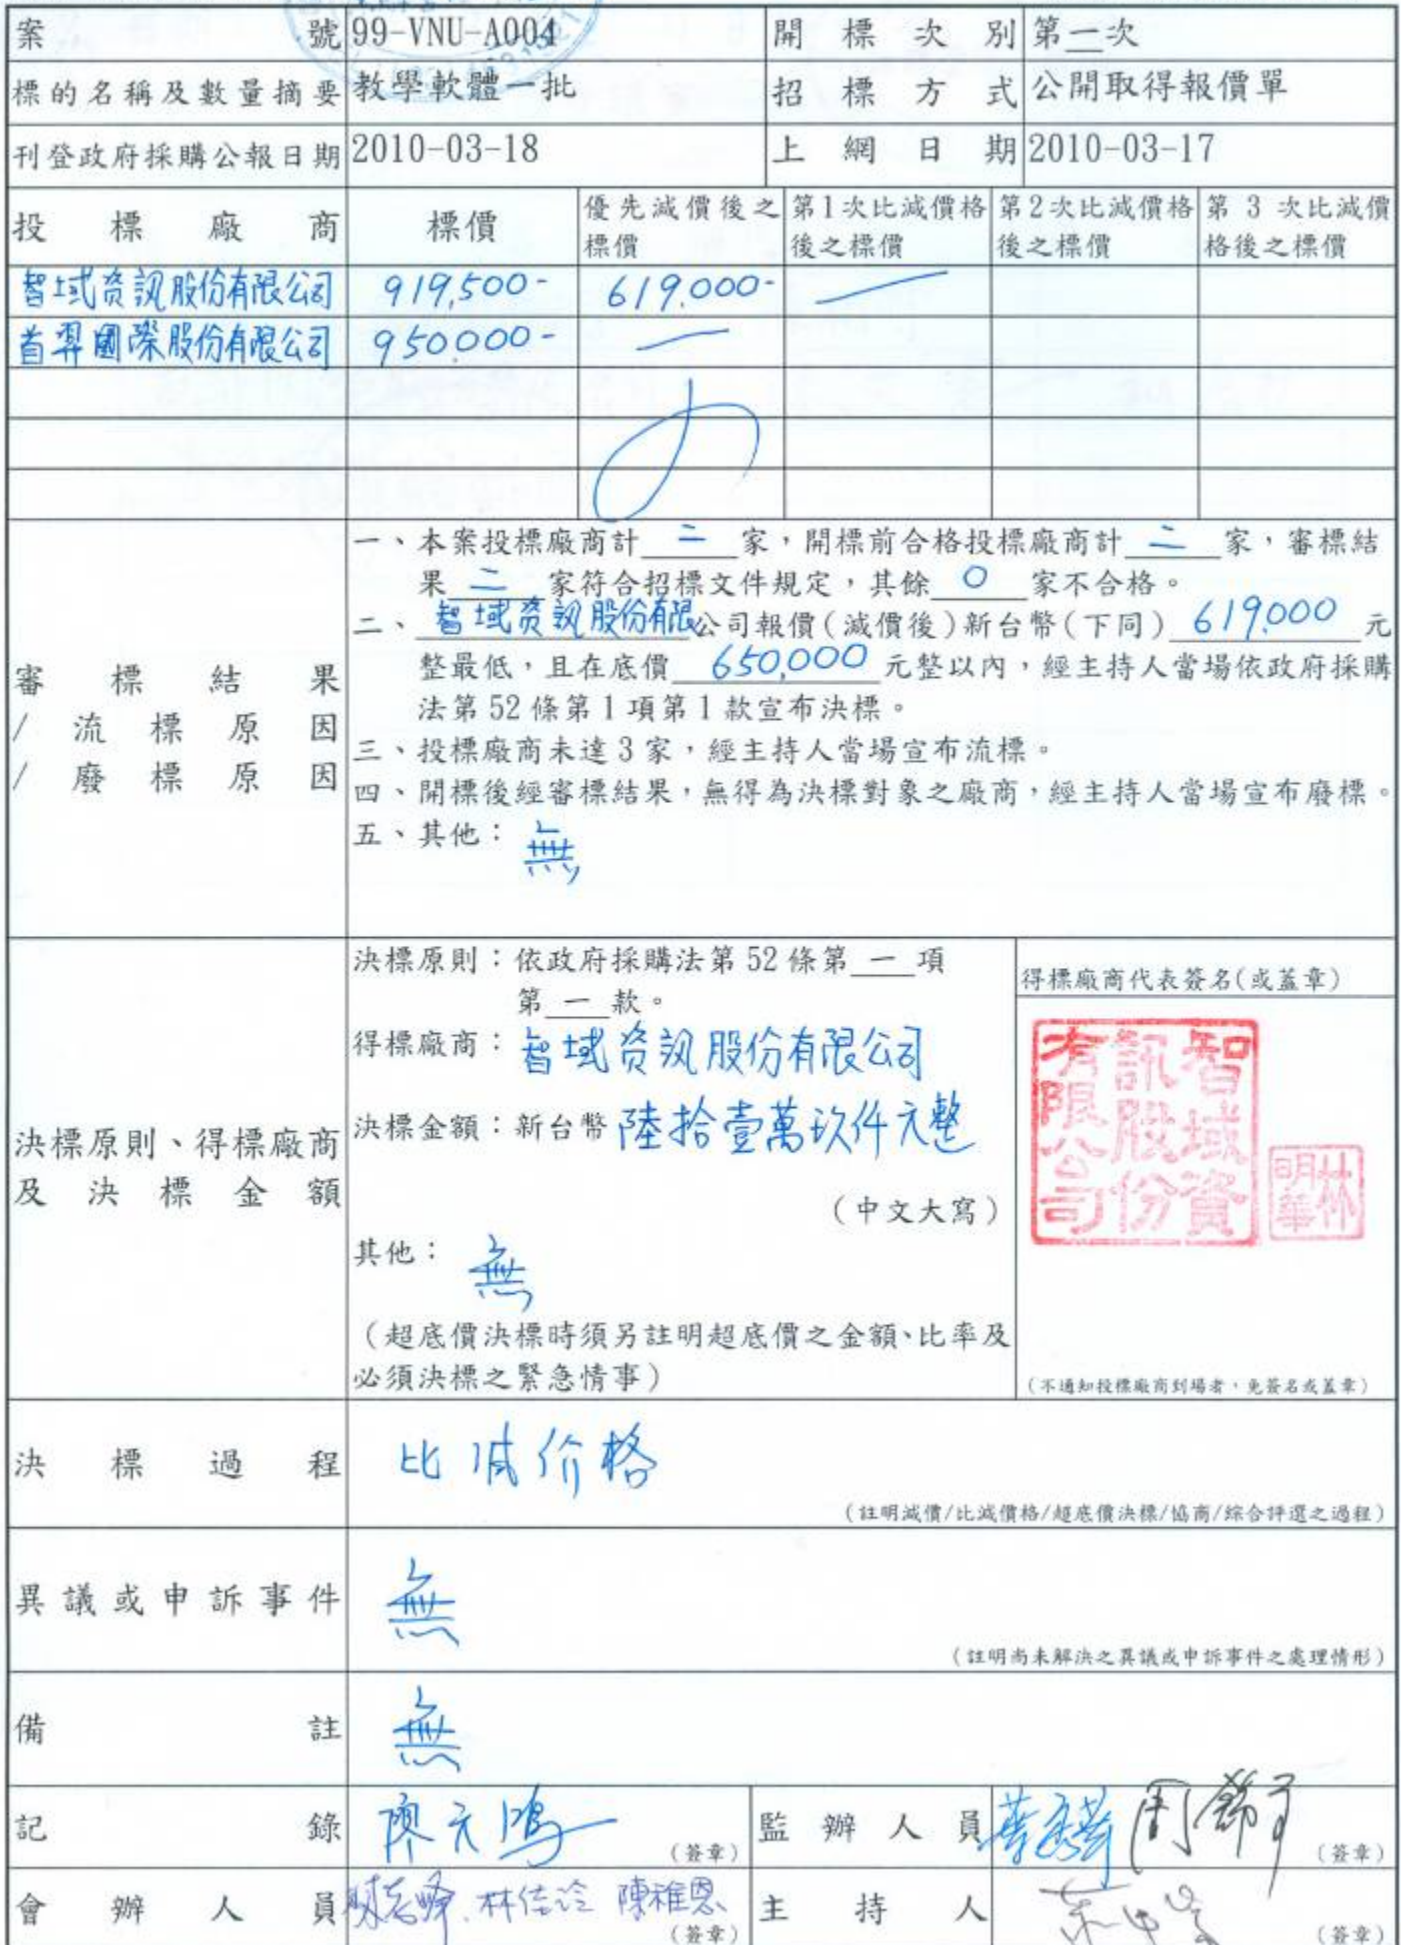 案號 99-VNU-A004 開標次別 第一次
標的名稱及數量摘要 教學軟體一批 招標方式 公開取得報價單
刊登政府採購公報日期 2010-03-18 上網日期 2010-03-17
投標廠商 標價 優先減價後之標價 第1次比減價格後之標價 第2次比減價格後之標價 第 3 次比減價格後之標價
智域资訊股份有限公司 919,500- 619,000-
首羿國際股份有限公司 950,000-
審標結果
/流標原因
/廢標原因
一、本案投標廠商計 二 家,開標前合格投標廠商計 二 家,審標結
果 二 家符合招標文件規定,其餘 0 家不合格。
二、智域资訊股份有限公司報價(減價後)新台幣(下同) 619,000 元
整最低,且在底價 650,000 元整以內,經主持人當場依政府採購
法第 52 條第 1 項第 1 款宣布決標。
三、投標廠商未達 3 家,經主持人當場宣布流標。
四、開標後經審標結果,無得為決標對象之廠商,經主持人當場宣布廢標。
五、其他:無
決標原則、得標廠商
及決標金額
決標原則:依政府採購法第 52 條第 一 項
第 一 款。
得標廠商:智域资訊股份有限公司
決標金額:新台幣 陸拾壹萬玖仟元整
(中文大寫)
其他:無
(超底價決標時須另註明超底價之金額、比率及
必須決標之緊急情事)
得標廠商代表簽名(或蓋章)
智域資訊股份有限公司
林明華
(不通知投標廠商到場者,免簽名或蓋章)
決標過程 比減价格
(註明減價/比減價格/超底價決標/協商/綜合評選之過程)
異議或申訴事件 無
(註明尚未解決之異議或申訴事件之處理情形)
備註 無
記錄 廖天鴻 (簽章) 監辦人員 (簽章)
會辦人員 林佳玲 陳雅恩 (簽章) 主持人 (簽章)